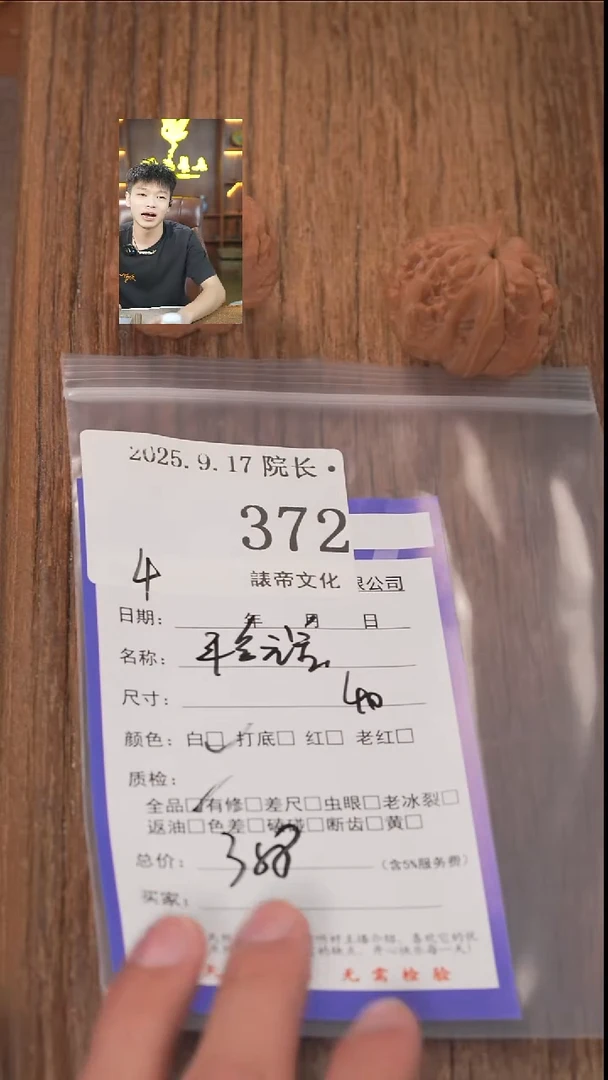 2025.9.17 院长·
372
4
諘帝文化 限公司
日期： 年 月 日
名称：
尺寸： 40
颜色：白□ 打底□ 红□ 老红□
质检：
全品□有修□差尺□虫眼□老冰裂□
返油□色差□磕碰□断齿□黄□
总价： 388 （含5%服务费）
买家：
无需检验